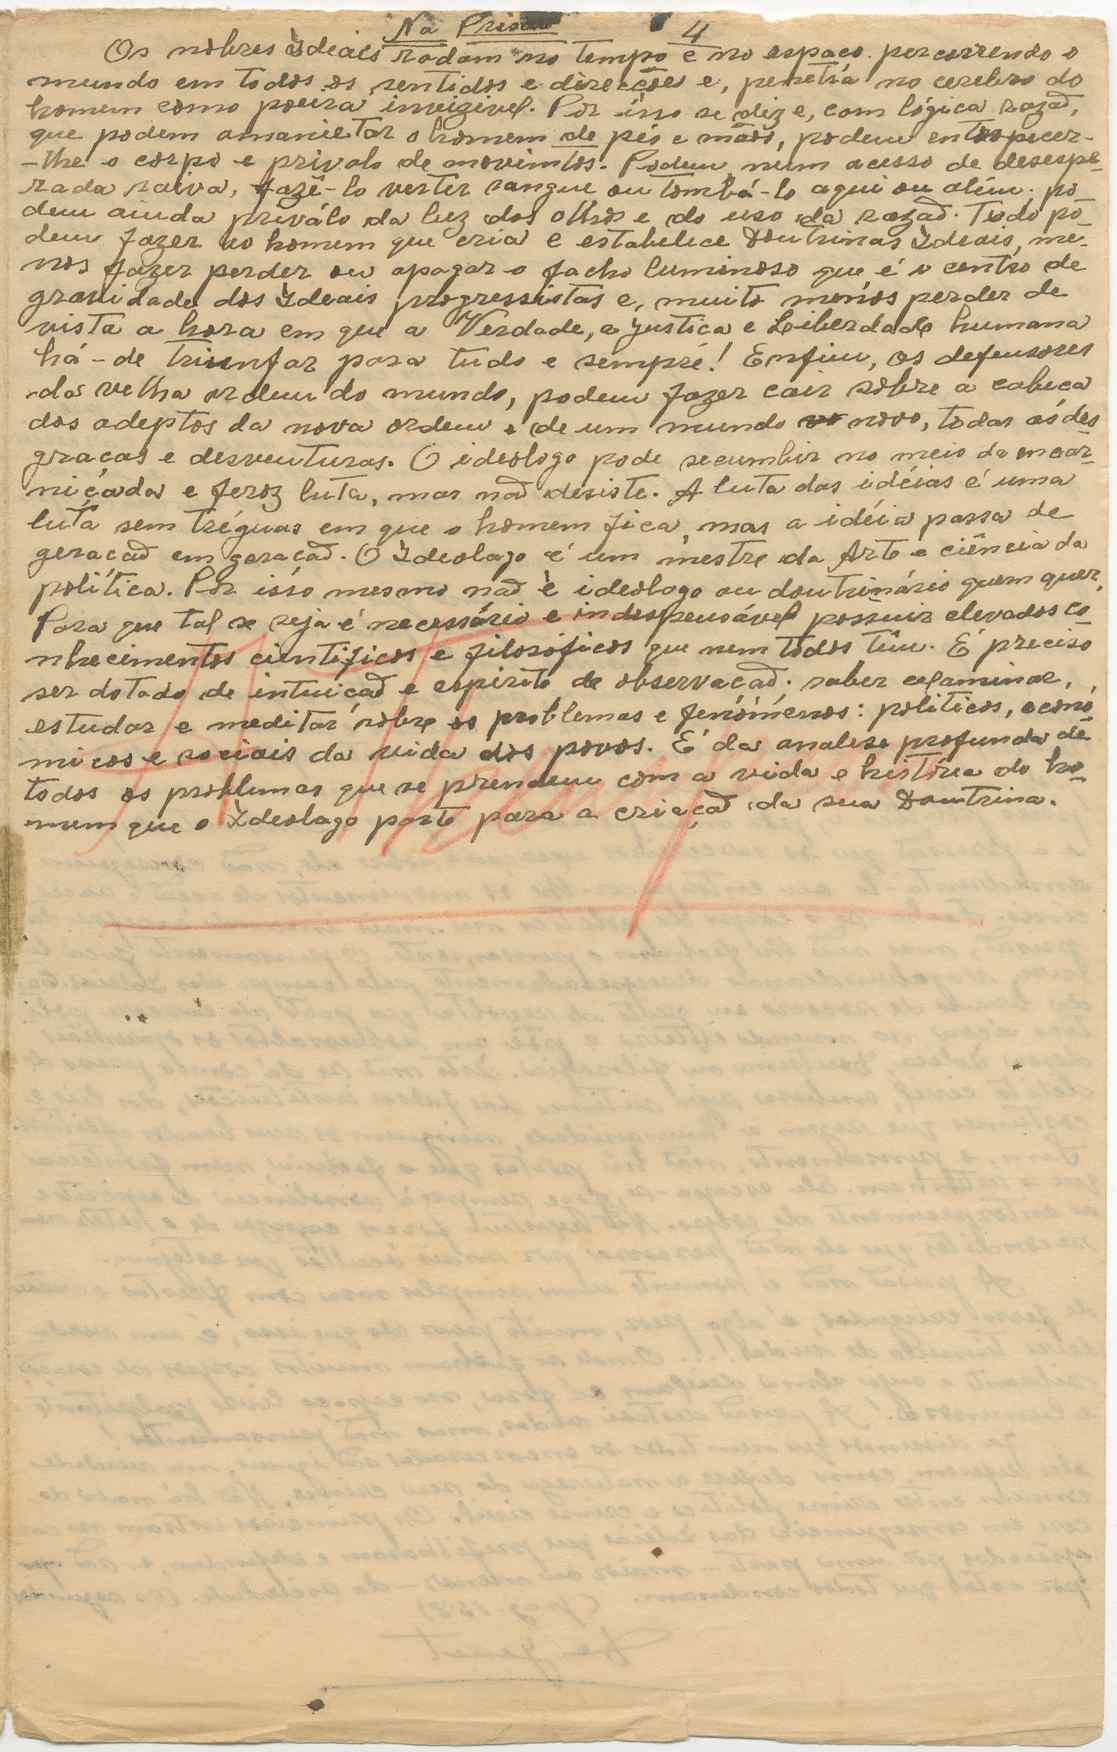 Na Prisão 4
Os nobres Ideais rodam no tempo e no espaço. percorrendo o
mundo em todos os sentidos e direcções e, penetra no cerebro do
homem como poeira invizivel. Por isso se diz e, com lógica razaõ,
que podem amanietar o homem de pés e mãos, podem entorpecer-
-lhe o corpo e privalo de movimtos. Podem num acesso de desespe-
rada raiva, fazê-lo verter sangue ou tombá-lo aqui ou além. po
dem ainda priválo da luz dos olhos e do uso da razaõ. Tudo pó-
dem fazer ao homem que cria e estabelece Doutrinas Ideais, me-
nos fazer perder ou apagar o facho luminoso que é o centro de
gravidade dos Ideais progressistas e, muito menos perder de
vista a hora em que a Verdade, a justiça e Liberdade humana
há-de triunfar para tudo e sempre! Enfim, os defensores
da velha ordem do mundo, podem fazer cair sobre a cabeça
dos adeptos da nova ordem e de um mundo novo, todas as des
graças e desventuras. O ideologo pode secumbir no meio da encar-
niçada e feroz luta, mas naõ desiste. A luta das idéias é uma
luta sem tréguas em que o homem fica, mas a idéia passa de
geraçaõ em geraçaõ. O Ideologo é um mestre da Arte e ciência da
política. Por isso mesmo naõ é ideologo ou doutrinário quem quer.
Para que tal se seja é necessário e indespensável possuir elevados co
nhecimentos cientificos e filosóficos que nem todos têm. É preciso
ser dotado de intuiçaõ e espirito de observaçaõ. saber examinar,
estudar e meditar sobre os problemas e fenómenos: politicos, econó
micos e sociais da vida dos povos. É da analise profunda de
todos os problemas que se prendem com a vida e história do ho-
mem que o Ideologo parte para a criaçaõ da sua Doutrina.